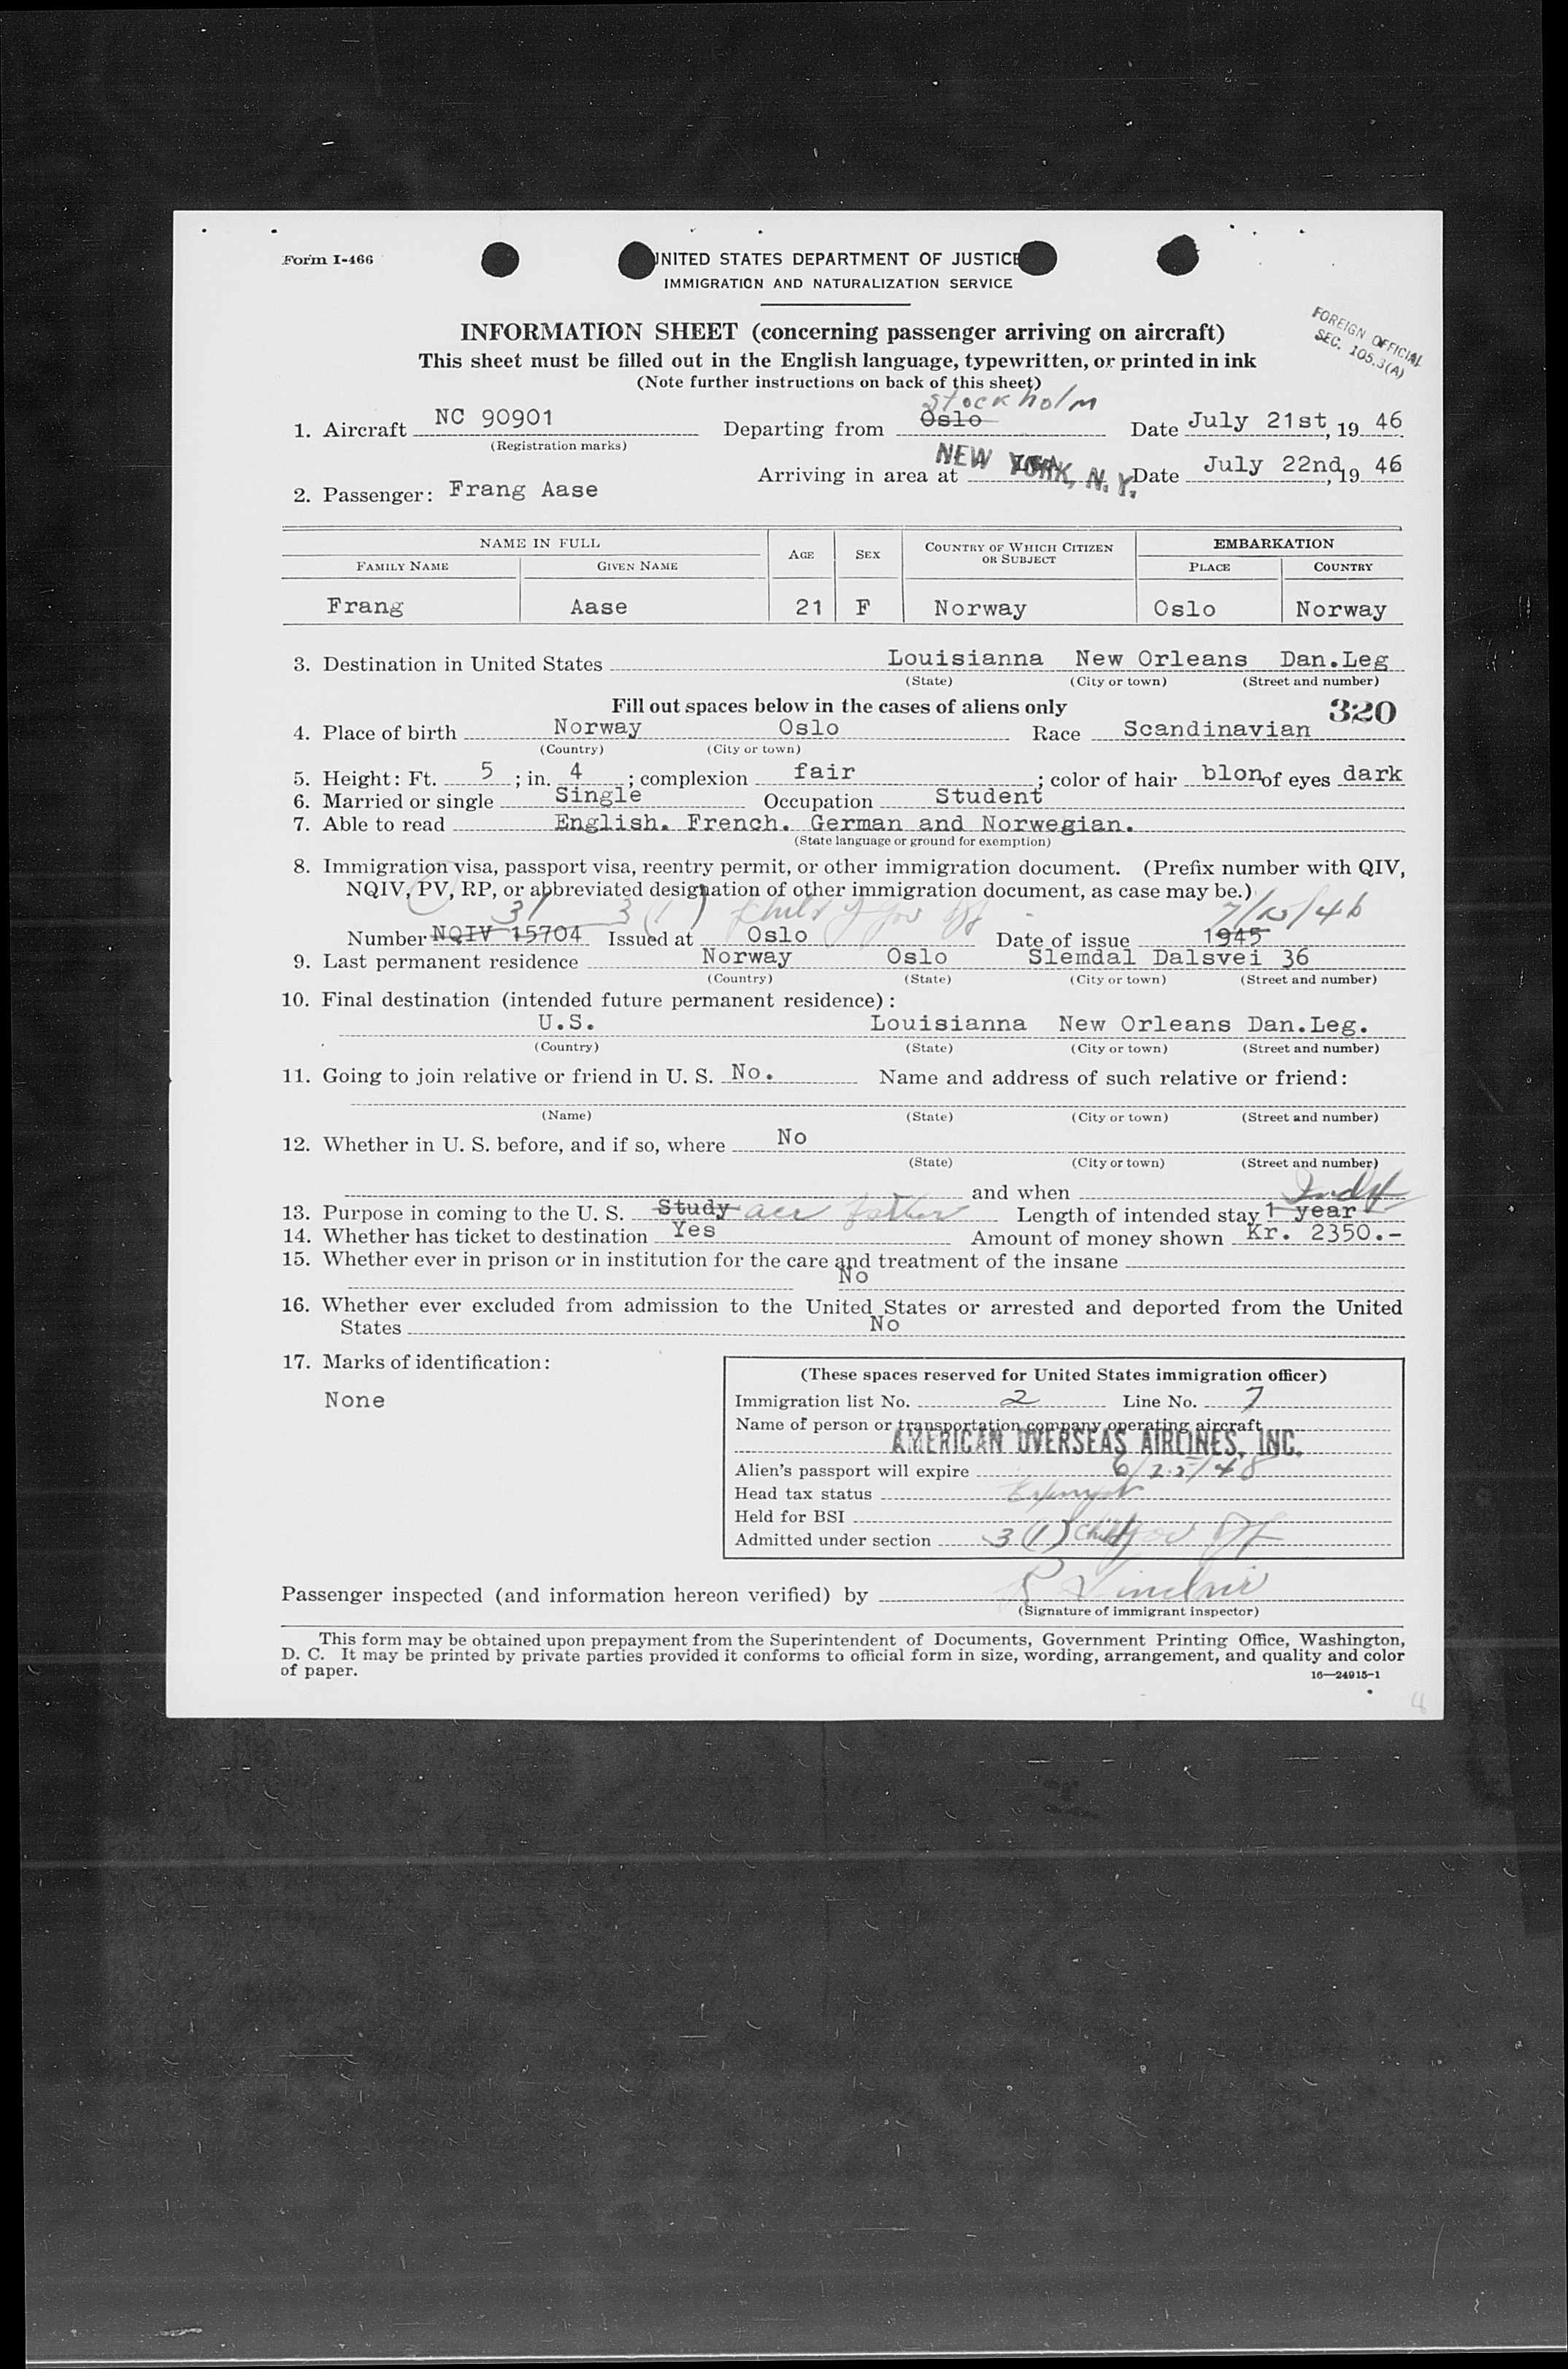 Form I-466
UNITED STATES DEPARTMENT OF JUSTICE
IMMIGRATION AND NATURALIZATION SERVICE
INFORMATION SHEET (concerning passenger arriving on aircraft)
FOREIGN OFFICIAL
SEC. 105.3(A)
This sheet must be filled out in the English language, typewritten, or printed in ink
(Note further instructions on back of this sheet)
Stockholm
1. Aircraft NC 90901 Departing from Oslo Date July 21st, 19 46
(Registration marks)
Arriving in area at NEW YORK, N. Y. Date July 22nd, 19 46
2. Passenger: Frang Aase
NAME IN FULL AGE SEX COUNTRY OF WHICH CITIZEN OR SUBJECT EMBARKATION
FAMILY NAME GIVEN NAME PLACE COUNTRY
Frang Aase 21 F Norway Oslo Norway
3. Destination in United States Louisianna New Orleans Dan.Leg
(State) (City or town) (Street and number)
Fill out spaces below in the cases of aliens only 320
4. Place of birth Norway Oslo Race Scandinavian
(Country) (City or town)
5. Height: Ft. 5 ; in. 4 ; complexion fair ; color of hair blon of eyes dark
6. Married or single Single Occupation Student
7. Able to read English. French. German and Norwegian.
(State language or ground for exemption)
8. Immigration visa, passport visa, reentry permit, or other immigration document. (Prefix number with QIV,
NQIV, PV, RP, or abbreviated designation of other immigration document, as case may be.)
31 3 (1) Child of Gov Off 7/15/46
Number NQIV 15704 Issued at Oslo Date of issue 1945
9. Last permanent residence Norway Oslo Slemdal Dalsvei 36
(Country) (State) (City or town) (Street and number)
10. Final destination (intended future permanent residence):
U.S. Louisianna New Orleans Dan.Leg.
(Country) (State) (City or town) (Street and number)
11. Going to join relative or friend in U. S. No. Name and address of such relative or friend:
(Name) (State) (City or town) (Street and number)
12. Whether in U. S. before, and if so, where No
(State) (City or town) (Street and number)
and when
Indef
13. Purpose in coming to the U. S. Study acc father Length of intended stay 1 year
14. Whether has ticket to destination Yes Amount of money shown Kr. 2350.-
15. Whether ever in prison or in institution for the care and treatment of the insane
No
16. Whether ever excluded from admission to the United States or arrested and deported from the United
States No
17. Marks of identification:
None
(These spaces reserved for United States immigration officer)
Immigration list No. 2 Line No. 7
Name of person or transportation company operating aircraft
AMERICAN OVERSEAS AIRLINES, INC.
Alien's passport will expire 6/25/48
Head tax status Exempt
Held for BSI
Admitted under section 3 (1) Child Gov Off
Passenger inspected (and information hereon verified) by R Sinclair
(Signature of immigrant inspector)
This form may be obtained upon prepayment from the Superintendent of Documents, Government Printing Office, Washington,
D. C. It may be printed by private parties provided it conforms to official form in size, wording, arrangement, and quality and color
of paper.
16—24915-1